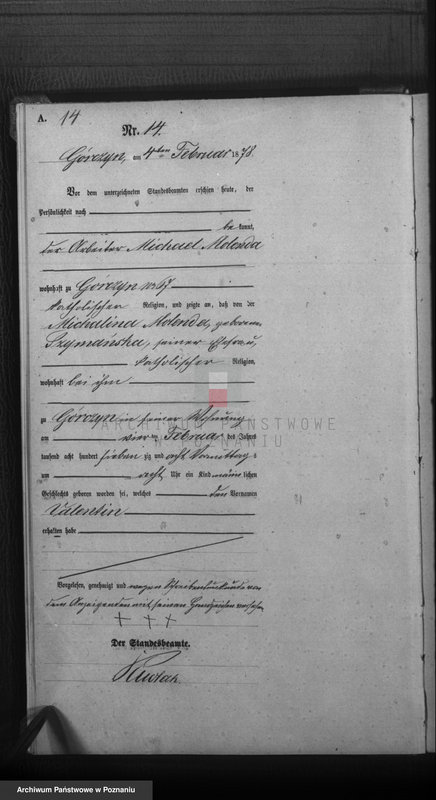 A. 14
Nr. 14.
Górczyn, am 4ten Februar 1878.
Vor dem unterzeichneten Standesbeamten erschien heute, der
Persönlichkeit nach
be kannt,
der Arbeiter Michael Molenda
wohnhaft zu Górczyn No 67
katholischer Religion, und zeigte an, daß von der
Michalina Molenda, geborenen
Szymańska, seiner Ehefrau,
katholischer Religion,
wohnhaft bei ihm
zu Górczyn in seiner Wohnung
am vierten Februar des Jahres
tausend acht hundert sieben zig und acht Vormittags
um acht Uhr ein Kind männ lichen
Geschlechts geboren worden sei, welches den Vornamen
Valentin
erhalten habe
Vorgelesen, genehmigt und wegen Schreibensunkunde von
dem Anzeigenden mit seinem Handzeichen versehen
+ + +
Der Standesbeamte.
ARCHIWUM PAŃSTWOWE
W POZNANIU
Archiwum Państwowe w Poznaniu